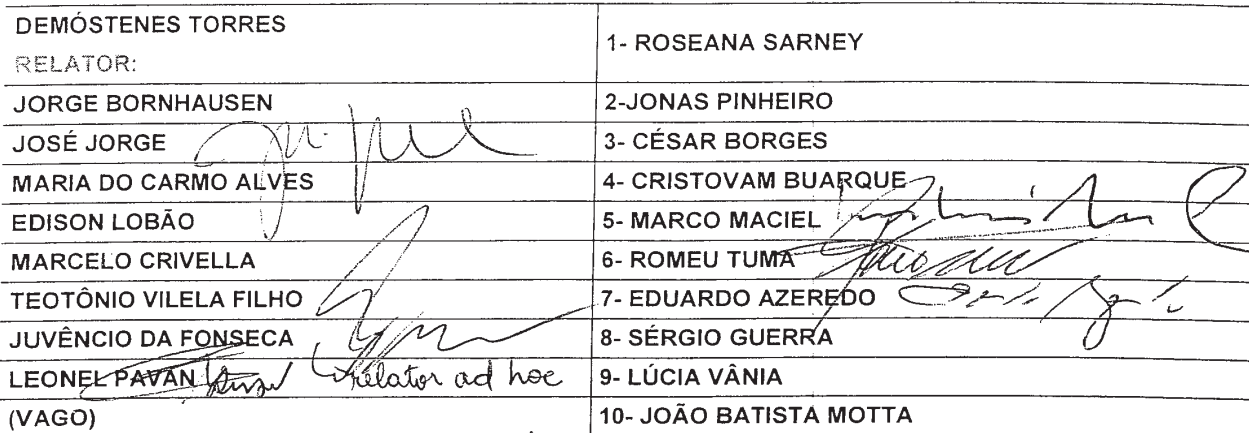 DEMÓSTENES TORRES
RELATOR:
1- ROSEANA SARNEY
JORGE BORNHAUSEN
2-JONAS PINHEIRO
JOSÉ JORGE
3- CÉSAR BORGES
MARIA DO CARMO ALVES
4- CRISTOVAM BUARQUE
EDISON LOBÃO
5- MARCO MACIEL
MARCELO CRIVELLA
6- ROMEU TUMA
TEOTÔNIO VILELA FILHO
7- EDUARDO AZEREDO
JUVÊNCIO DA FONSECA
8- SÉRGIO GUERRA
LEONEL PAVAN relator ad hoc
9- LÚCIA VÂNIA
(VAGO)
10- JOÃO BATISTA MOTTA